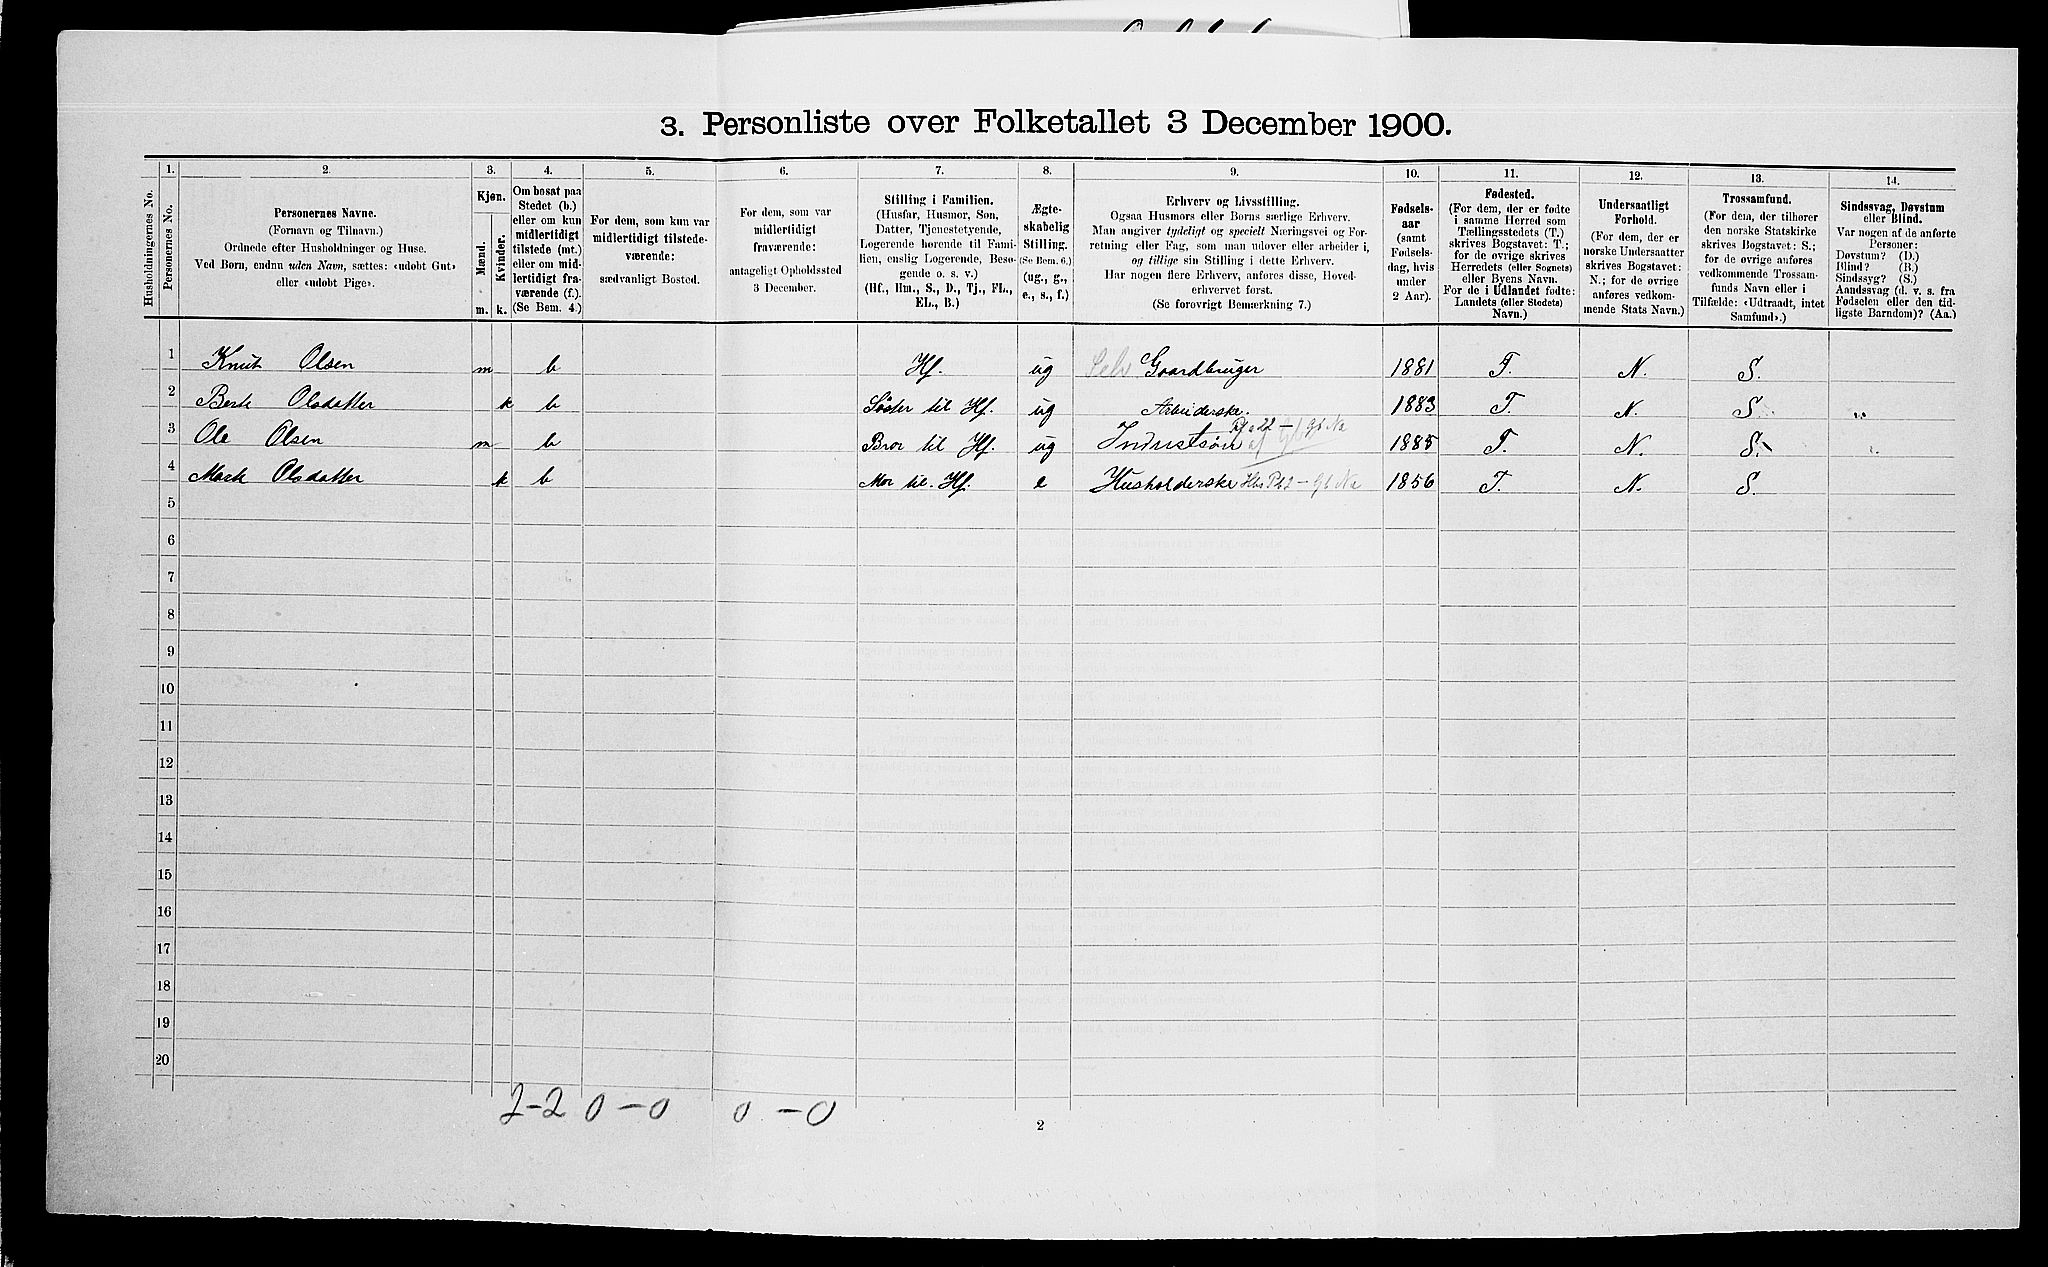 3. Personliste over Folketallet 3 December 1900.
Husholdningernes No.
1.
Personernes No.
2.
Personernes Navne.
(Fornavn og Tilnavn.)
Ordnede efter Husholdninger og Huse.
Ved Børn, endnu uden Navn, sættes: «udøbt Gut»
eller «udøbt Pige».
3.
Kjøn.
Mænd.
Kvinder.
m. k.
4.
Om bosat paa
Stedet (b.)
eller om kun
midlertidigt
tilstede (mt.)
eller om mid-
lertidigt fra-
værende (f.).
(Se Bem. 4.)
5.
For dem, som kun var
midlertidigt tilstede-
værende:
sædvanligt Bosted.
6.
For dem, som var
midlertidigt
fraværende:
antageligt Opholdssted
3 December.
7.
Stilling i Familien.
(Husfar, Husmor, Søn,
Datter, Tjenestetyende,
Logerende hørende til Fami-
lien, enslig Logerende, Besø-
gende o. s. v.)
(Hf., Hm., S., D., Tj., FL.,
EL., B.)
8.
Ægte-
skabelig
Stilling.
(Se Bem. 6.)
(ug., g.,
e., s., f.)
9.
Erhverv og Livsstilling.
Ogsaa Husmors eller Børns særlige Erhverv.
Man angiver tydeligt og specielt Næringsvei og For-
retning eller Fag, som man udøver eller arbeider i,
og tillige sin Stilling i dette Erhverv.
Har nogen flere Erhverv, anføres disse, Hoved-
erhvervet først.
(Se forøvrigt Bemærkning 7.)
10.
Fødsels-
aar
(samt
Fødsels-
dag, hvis
under
2 Aar).
11.
Fødested.
(For dem, der er fødte
i samme Herred som
Tællingsstedets (T.)
skrives Bogstavet: T.;
for de øvrige skrives
Herredets (eller Sognets)
eller Byens Navn.
For de i Udlandet fødte:
Landets (eller Stedets)
Navn.)
12.
Undersaatligt
Forhold.
(For dem, der er
norske Undersaatter
skrives Bogstavet:
N.; for de øvrige
anføres vedkom-
mende Stats Navn.)
13.
Trossamfund.
(For dem, der tilhører
den norske Statskirke
skrives Bogstavet: S.;
for de øvrige anføres
vedkommende Trossam-
funds Navn eller i
Tilfælde: «Udtraadt, intet
Samfund».)
14.
Sindssvag, Døvstum
eller Blind.
Var nogen af de anførte
Personer:
Døvstum? (D.)
Blind? (B.)
Sindssyg? (S.)
Aandssvag (d. v. s. fra
Fødselen eller den tid-
ligste Barndom)? (Aa.)
1 Knut Olsen m b Hf. ug Selv Gaardbruger 1881 T. N. S.
2 Berte Olsdatter k b Søster til Hf. ug Arbeiderske. 1883 T. N. S.
3 Ole Olsen m b Bror til Hf. ug 1885 T. N. S.
4 Olsdatter k b Mor til Hf. e Husholderske 1856 T. N. S.
5
6
7
8
9
10
11
12
13
14
15
16
17
18
19
20
2-2 0-0 0-0
2